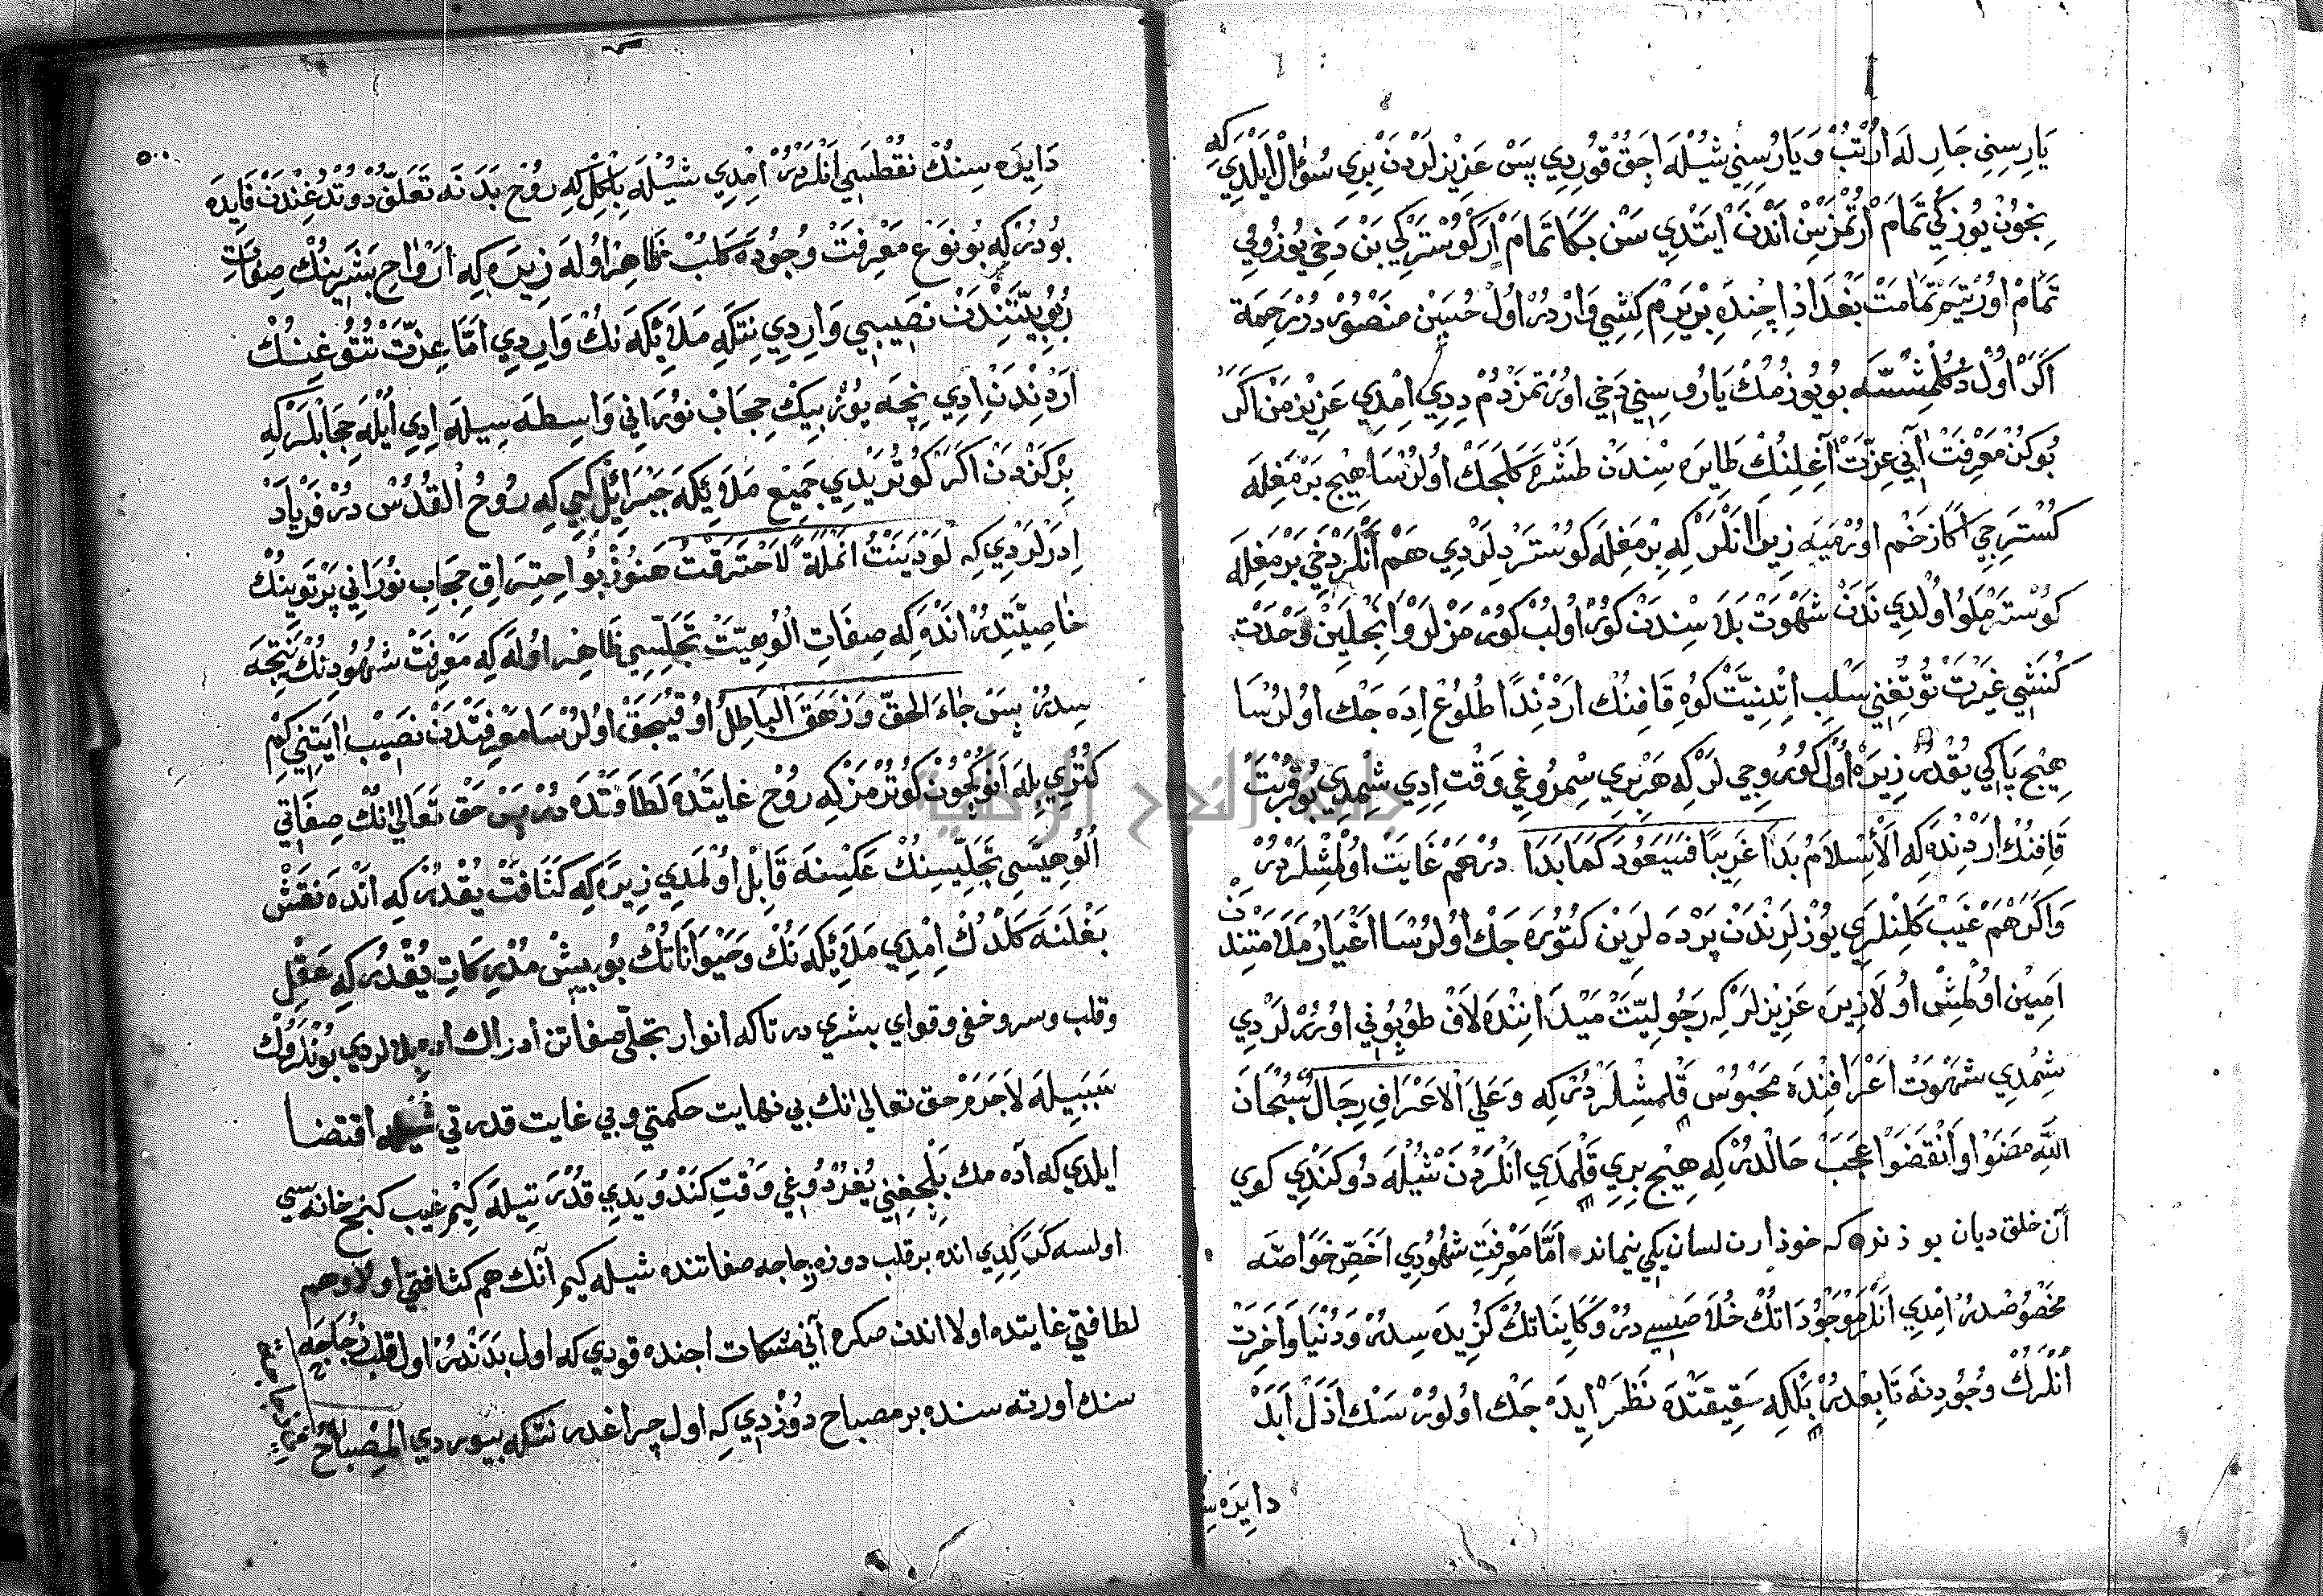 يَارِسِنِي جَارِ لَه اُرْتُبْ وَ يَارُسِنِي شُيْلَه اَجَقْ قُورِدِي پَسْ عَزِيزْلَرْدَنْ بِرِي سُؤَالْ اَيْلَدِي كِه
نِجُونْ يُوزِكِي تَمَامْ اُرْتْمَزْسِنْ اَنْدَنْ اَيْتَدِي سَنْ بَكَا تَمَامْ اَرْ كُوسْتَرْكِي بَنْ دَخِي يُوزُومِي
تَمَامْ اُورْتَيَمْ تَمَامَتْ بَغْدَادْ اِچِنْدَه بِرْ يَرِمْ كِشِي وَارْدُرْ اُولْ حُسَيْنْ مَنْصُورْدُرْ رَحْمَة
اَكَرْ اُولْ دَكُلْمِشْسَه بُو يُوزُمُكْ يَارُوسِنِي دَخِي اُورْتْمَزْدُمْ دِدِي اِمْدِي عَزِيزِ مَنْ اَكَرْ
بُوكُنْ مَعْرِفَتْ اَنِي عِزَّتْ اَغِلِنُكْ طَايِرَه سِنْدَنْ طَشْرَه كَلَجَكْ اُولُرْسَا هِيْچْ بَرْمَغِلَه
كُسْتَرِجِي اَكَا زَخْمْ اُورْمَيَه زِيرَا اَنْلَرْ كِه بِرْمَغِلَه كُوسْتَرْدِلَرْدِي هَمْ اَنْلَرْ دَخِي بَرْمَغِلَه
كُوسْتَرْمَلُو اُولْدِي نَدَنْ شَهْوَتْ بَلَاسِنْدَنْ كُورْ اُولُبْ كُورْمَزْلَرْ وَ اَيْجِلِينْ وَحْدَتْ
كُنَشِي غَيْرَتْ تُوتُغِنِي سَلْبِ اِتْدِنِيَّتْ كُوهِ قَافِنُكْ اَرْدِنْدَا طُلُوعْ اِدَه جَكْ اُولُرْسَا
هِيْچْ پَاكِي يُقْدُرْ زِيرَه اُولْ كُورُوجِي لَرْكِه هَرْ بِرِي سِمُرُوغِي وَقْت اِدِي شِمْدِي بُو قُرْبَتْ
قَافِنُكْ اَرْدِنْدَه كِه اَلْاِسْلَامُ بَدَا غَرِيبًا فَسَيَعُودُ كَمَا بَدَا دُرْ هَمْ غَايَتْ اُولْمِشْلَرْدُرْ
وَاكَرْ هَمْ غَيْبْ كَلِنْلَرِي يُوزْلَرِنْدَنْ پَرْدَه لَرِينْ كُتُورَه جَكْ اُولُرْسَا اَغْيَارْ مَلَامَتِنْدَنْ
اَمِينْ اُولْمِشْ اُولَا زِيرَه عَزِيزْلَرْ كِه رَجُولِيَّتْ مَيْدَانِنْدَه لَافْ طُوبُونِي اُورُرْلَرْدِي
شِمْدِي شَهْوَتْ اَعْرَافِنْدَه مَحْبُوسْ قَلْمِشْلَرْدُرْكِه وَعَلَي الْاَعْرَافِ رِجَالٌ سُبْحَانَ
اللَّهِ مَضَوْا وَ اَنْقَضَوْا عَجَبْ حَالْدُرْ كِه هِيْچْ بِرِي قَلْمَدِي اَنْلَرْدَنْ شُيْلَه دُوكَنْدِي كوي
آن خلق ديان بو ذ نره كه خوذ ارن لسان يكي نيماند اَمَّا مَعْرِفَتِ شُهُودِي اَخَصِّ خَوَاصَّه
مَخْصُوصْدُرْ اِمْدِي اَنْلَرْ مَوْجُودَاتُكْ خُلَاصَه سِي دُرْ وَ كَايِنَاتُكْ كُزِيدَه سِدُرْ وَ دُنْيَا وَ اَخِرَتْ
اَنْلَرُكْ وُجُودِنَه تَابِعْدُرْ بَلْكِه حَقِيقَتْدَه نَظَرْ اِيدَه جَكْ اُولُورْسَكْ اَزَلْ اَبَدْ
دايره سـ
دَايِرَه سِنُكْ نُقْطَسِي اَنْلَرْدُرْ اِمْدِي شُيْلَه بِلْكِلْ كِه رُوحْ بَدَنَه تَعَلُّقْ دُوتْدُغِنْدَنْ فَايِدَه
بُودُرْكِه بُو نَوْع مَعْرِفَتْ وُجُودَه كَلُبْ ظَاهِرْ اُولَه زِيرَه كِه اَرْوَاحِ بَشَرِينُكْ صِفَاتِ
رُبُوبِيَّتِنْدَنْ نَصِيبِي وَارِدِي نِتَكِه مَلَائِكَه نُكْ وَارِدِي اَمَّا عِزَّتْ تُتُوغِنُكْ
اَرْدِنْدَنْ اِدِي نِچَه يُوزْ بِيكْ حِجَابْ نُورَانِي وَاسِطَه سِيلَه اِدِي اُيْلَه حِجَابْلَرْكِه
بِرْ كَزْدَنْ اَكَرْ كُوتُرَيْدِي جَمِيعِ مَلَائِكَه جَبْرَائِلْ كِبِي كِه رُوحُ الْقُدُسْ دُرْ فَرْيَادْ
اِدَرْلَرْدِي كِه لَوْ دَنَيْتُ اَنْمُلَةً لَاحْتَرَقْتُ هَنُوزْ بُو اِحْتِرَاقِ حِجَابِ نُورَانِي پَرْتَوِينُكْ
خَاصِيَّتِدُرْ اَنْدَه كِه صِفَاتِ اُلُوهِيَّتْ تَجَلِّسِي ظَاهِرْ اُولَه كِه مَعْرِفَتْ شُهُودِنُكْ نَتِيجَه
سِدُرْ پَسْ جَاءَ الْحَقُّ وَ زَهَقَ الْبَاطِلُ اُوقُيَجَقْ اُولُرْسَا مَعْرِفَتْدَنْ نَصِيبْ اَيْتَنِي كِمْ
كُتُرِي بِلَه اَنُوكْچُونْ كُوتُرْمَزْ كِه رُوحْ غَايَتْدَه لَطَافَتْدَه دُرْ پَسْ حَقْ تَعَالَيٰ نُكْ صِفَاتِي
اُلُوهِيَّتِي تَجَلِّيسِنُكْ عَكْسِنَه قَابِلْ اُولْمَدِي زِيرَه كِه كَثَافَتْ يُقْدُرْ كِه اَنْدَه نَقْشْ
بَغْلَنَه كَلْدُكْ اِمْدِي مَلَائِكَه نُكْ وَ حَيْوَانَاتُكْ بُو بِيشْ مُدْرِكَاتِ يُقْدُرْ كِه عَقْلْ
وقلب وسر وخفى وقواي بشري در تا كه انوار تجلّي صفاتن ادراك ايده بلالردي بُونْدَرُوكْ
سَبَبِيلَه لَاجَرَمْ حق تعالىٰ نك بي نهايت حكمتي وبي غايت قدرتي شيله اقتضا
ايلدي كه آده مك بَلْچِغِنِي يُغُرْدُوغِي وَقْتِ كَنْدُو يَدِي قُدْرَتِيلَه كِيْم غيب كنج خانه سي
اولسه كَرَكِدِي انده بر قلب دوزه زجاجه صفاتنده شيله كيم آنك هم كثافتي اولا وهم
لطافتي غايتده اولا اندن صكره آني مشكات اجنده قودي كه اول بَدَنْدُرْ اول قلب زُجَاجَه
سنك اورته سنده بر مصباح دوُزْدِي كِه اول چراغدر نتكه بيوردي المِصْبَاحُ